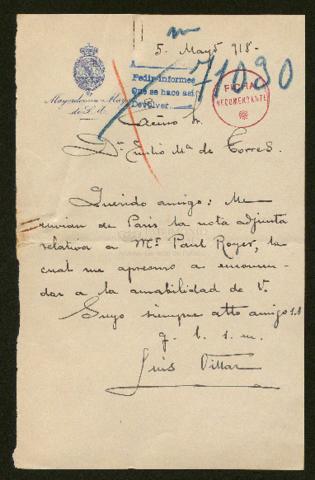 5. Mayo 918-
71090
A
Pedir informes
Que se hace así
Devolver
FICHA
RECOMENDANTE
Mayordomía Mayor
de S. M.
Dn. Emilio Ma. de Torres.
Querido amigo: Me
envian de Paris la nota adjunta
relativa a Mr. Paul Royer, la
cual me apresuro a encomen-
dar a la amabilidad de V.
Suyo siempre atto amigo s.s.
q. b. s. m.
Luis Villar